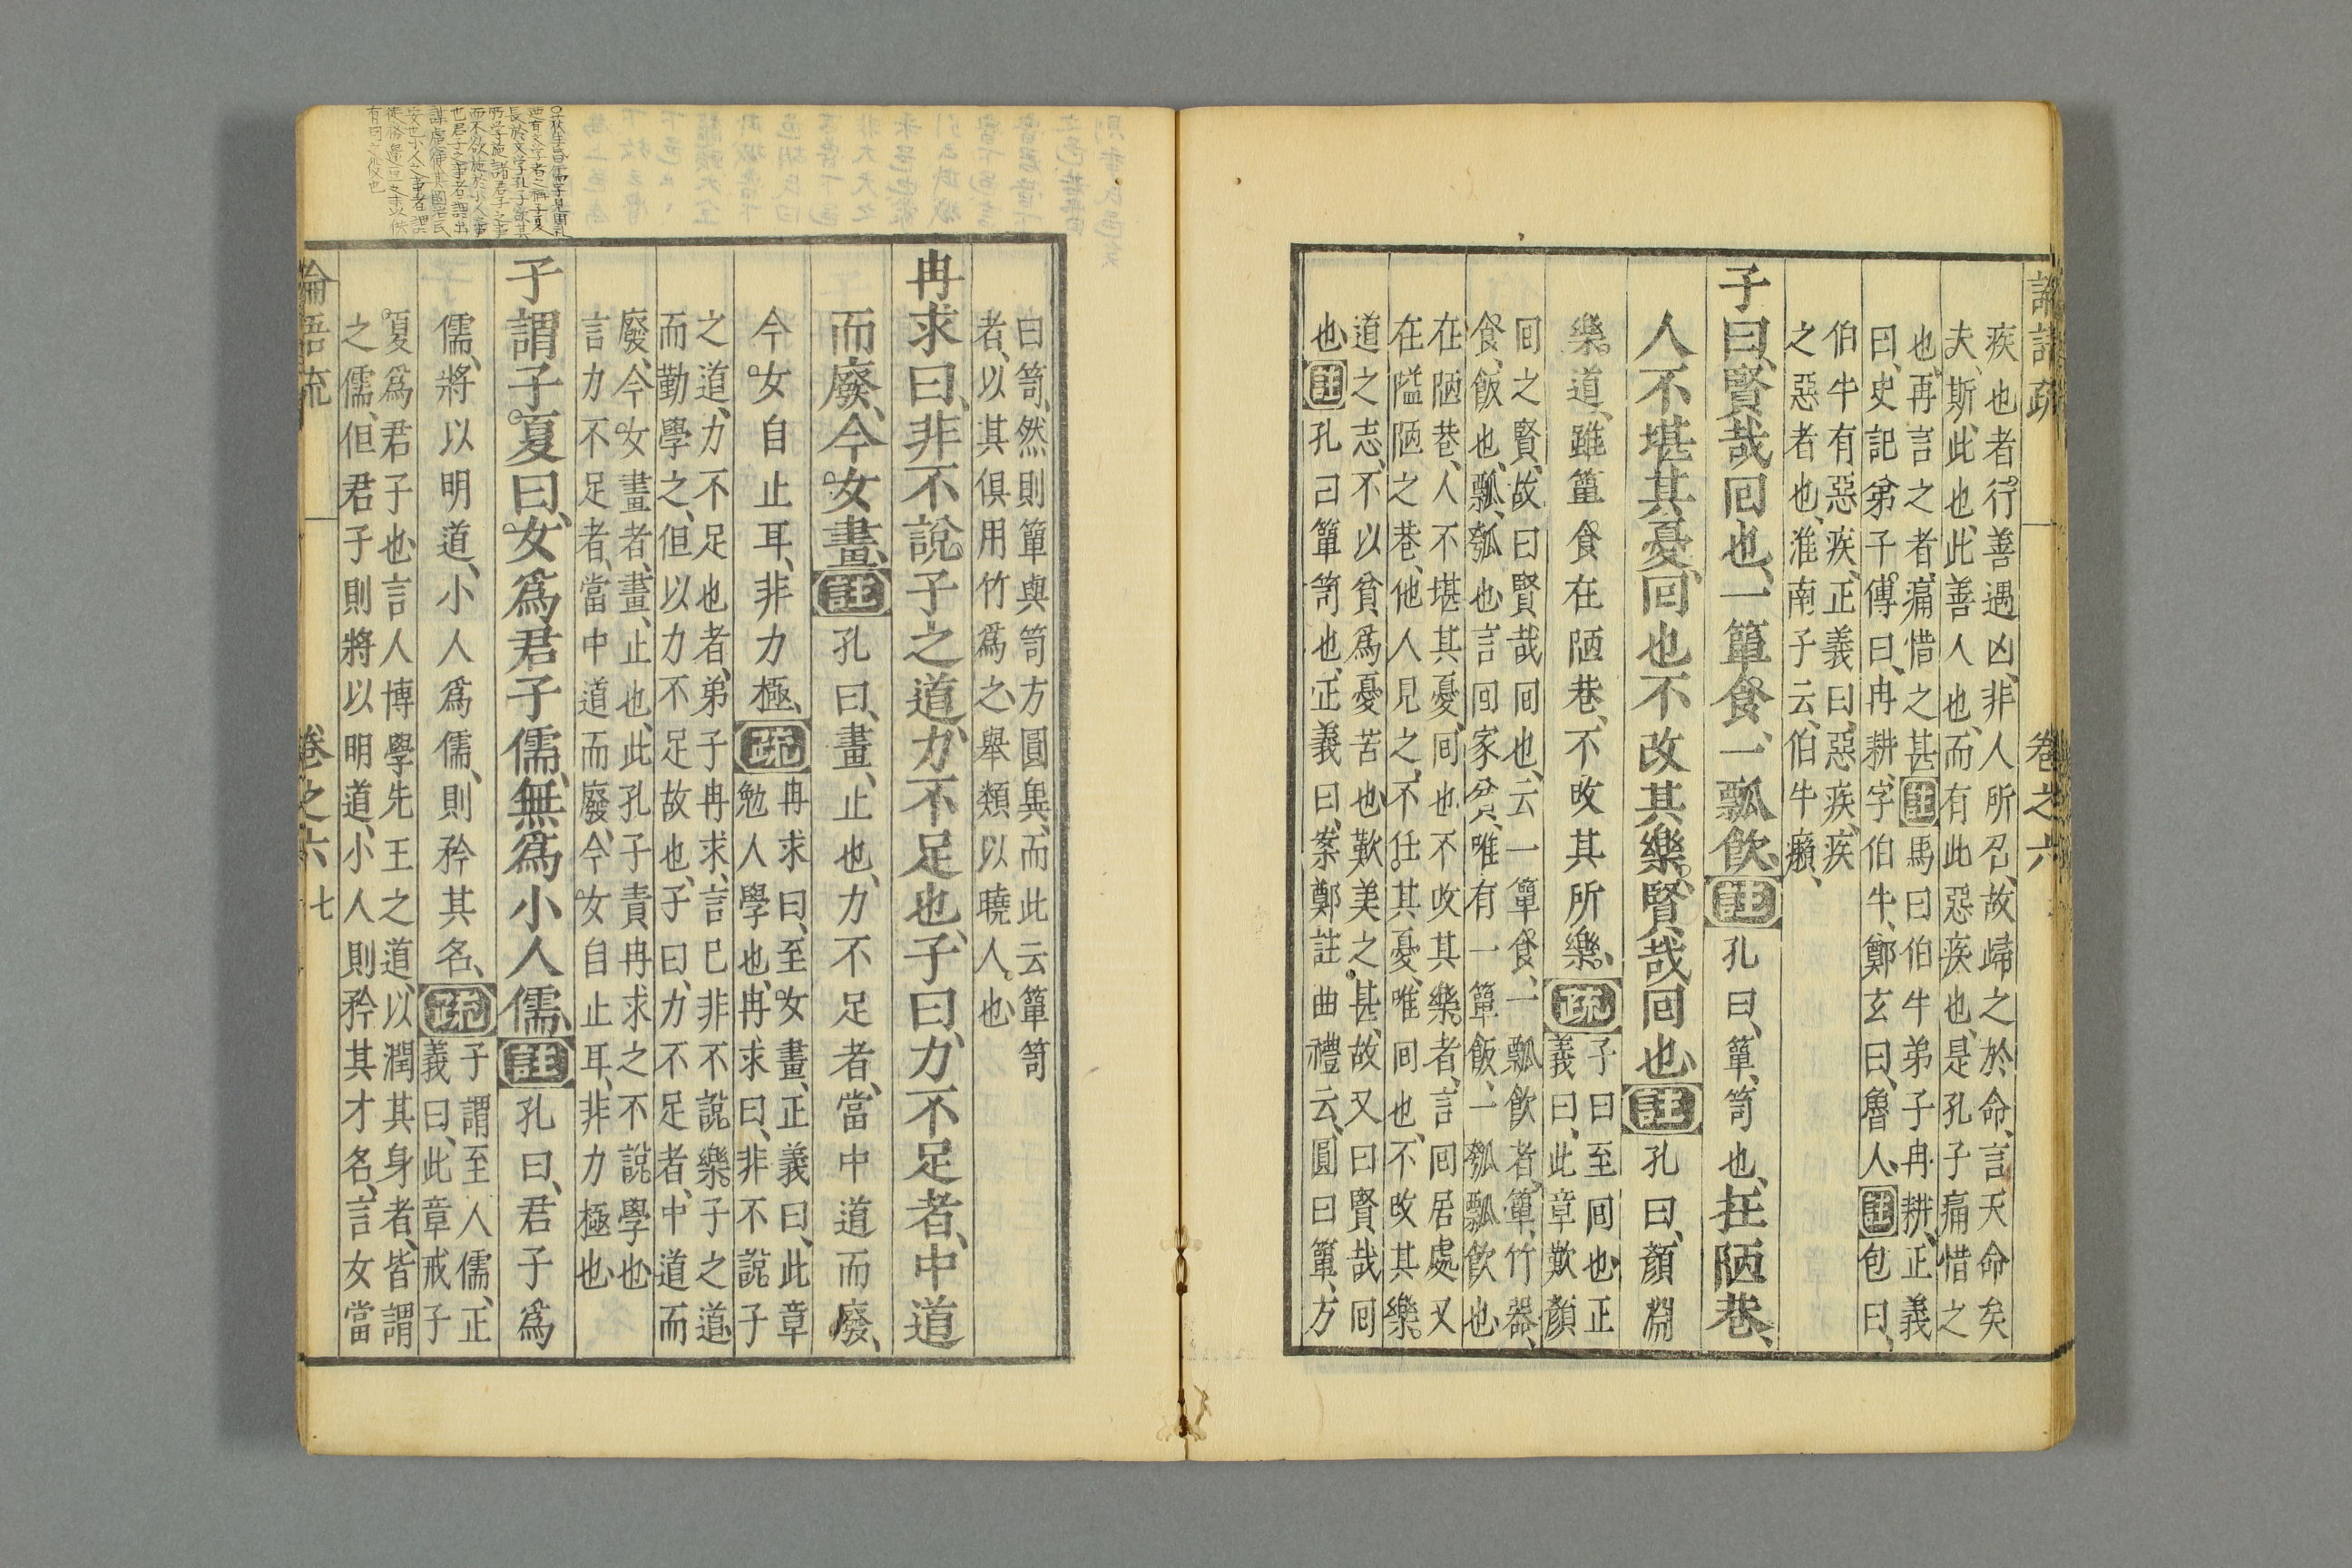 論語疏 卷之六
疾也者。行善遇凶、非人所召、故歸之於命、言天命矣
夫、斯、此也、此善人也、而有此惡疾也、是孔子痛惜之
也、再言之者、痛惜之甚註馬曰伯牛弟子冉耕、正義
曰、史記弟子傳曰、冉耕、字伯牛、鄭玄曰、魯人、註包曰、
伯牛有惡疾、正義曰、惡疾、疾
之惡者也、淮南子云、伯牛癩、
子曰、賢哉回也、一簞食、一瓢飲、註孔曰、簞、笥也、在陋巷、
人不堪其憂、回也不改其樂、賢哉回也、註孔曰、顏淵
樂道、雖簞食在陋巷、不改其所樂、疏子曰至回也、正
義曰、此章歎顏
回之賢、故曰賢哉回也、云一簞食、一瓢飲者、簞、竹器、
食、飯也、瓢、瓠也、言回家貧、唯有一簞飯、一瓠瓢飲也
在陋巷、人不堪其憂、回也不改其樂者、言回居處又
在隘陋之巷、他人見之、不任其憂、唯回也、不改其樂
道之志、不以貧爲憂苦也、歎美之甚、故又曰賢哉回
也註孔曰簞笥也、正義曰、案鄭註曲禮云、圓曰簞、方
曰笥、然則簞與笥方圓異、而此云簞笥
者、以其俱用竹爲之、舉類以曉人也
冉求曰、非不說子之道、力不足也、子曰、力不足者、中道
而廢、今女畫、註孔曰、畫、止也、力不足者、當中道而廢、
今女自止耳、非力極、疏冉求曰、至女畫、正義曰、此章
勉人學也、冉求曰、非不說子
之道、力不足也者、弟子冉求、言已非不說樂子之道
而勤學之、但以力不足故也、子曰、力不足者、中道而
廢、今女畫者、畫、止也、此孔子責冉求之不說學也
言力不足者、當中道而廢、今女自止耳、非力極也
子謂子夏曰、女爲君子儒、無爲小人儒、註孔曰、君子爲
儒、將以明道、小人爲儒、則矜其名、疏子謂至人儒、正
義曰、此章戒子
夏爲君子也、言人博學先王之道、以潤其身者、皆謂
之儒、但君子則將以明道、小人則矜其才名、言女當
論語疏 卷之六 七